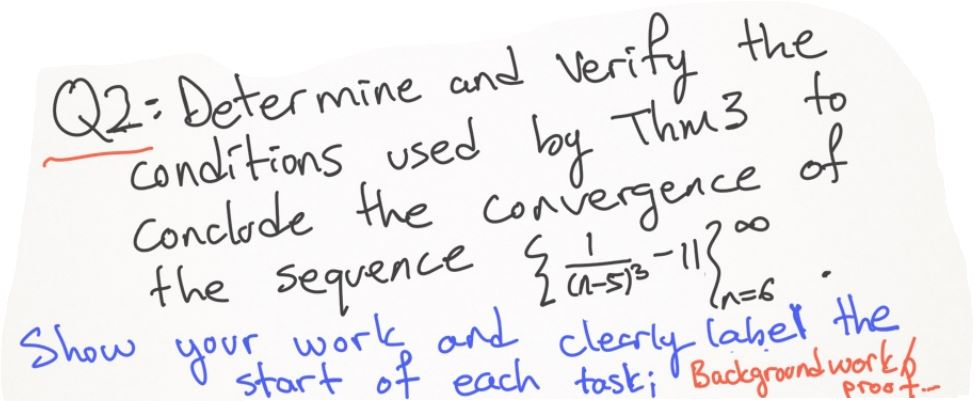 Q2: Determine and verify the
conditions used by Thm3 to
conclude the convergence of
the sequence { 1/(n-5)³ - 11 }∞ n=6 .
Show your work and clearly label the
start of each task; Background work/
proof...